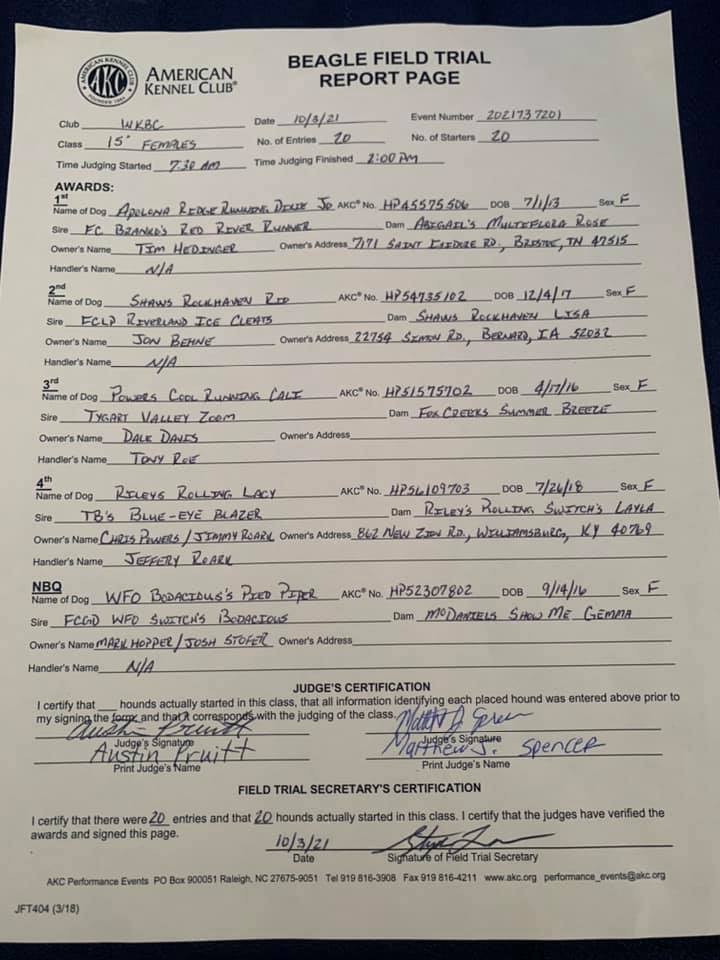 AMERICAN KENNEL CLUB
FOUNDED 1884
AKC
AMERICAN
KENNEL CLUB®
BEAGLE FIELD TRIAL
REPORT PAGE
Club WKBC Date 10/3/21 Event Number 2021737201
Class 15" FEMALES No. of Entries 20 No. of Starters 20
Time Judging Started 7:30 AM Time Judging Finished 2:00 PM
AWARDS:
1st
Name of Dog APOLONA RIDGE RUNNING DIXIE JO AKC® No. HP45575506 DOB 7/1/13 Sex F
Sire FC BRANKO'S RED RIVER RUNNER Dam ABIGAIL'S MULTIFLORA ROSE
Owner's Name TIM HEDINGER Owner's Address 7171 SAINT ISIDORE RD., BRISTOW, IN 47515
Handler's Name N/A
2nd
Name of Dog SHAWS ROCKHAVEN RIO AKC® No. HP54735102 DOB 12/4/17 Sex F
Sire FCLP RIVERLAND ICE CLEATS Dam SHAWS ROCKHAVEN LISA
Owner's Name JON BEHNE Owner's Address 22754 SIMON RD., BERNARD, IA 52032
Handler's Name N/A
3rd
Name of Dog POWERS COOL RUNNING CALI AKC® No. HP51575702 DOB 4/17/16 Sex F
Sire TYGART VALLEY ZOOM Dam FOX CREEKS SUMMER BREEZE
Owner's Name DALE DAVIS Owner's Address
Handler's Name TONY ROE
4th
Name of Dog RILEYS ROLLING LACY AKC® No. HP56109703 DOB 7/26/18 Sex F
Sire TB'S BLUE-EYE BLAZER Dam RILEY'S ROLLING SWITCH'S LAYLA
Owner's Name CHRIS POWERS / JIMMY ROARK Owner's Address 862 NEW ZION RD., WILLIAMSBURG, KY 40769
Handler's Name JEFFERY ROARK
NBQ
Name of Dog WFO BODACIOUS'S PIED PIPER AKC® No. HP52307802 DOB 9/14/16 Sex F
Sire FCGD WFO SWITCH'S BODACIOUS Dam McDANIELS SHOW ME GEMMA
Owner's Name MARK HOPPER / JOSH STOFER Owner's Address
Handler's Name N/A
JUDGE'S CERTIFICATION
I certify that ___ hounds actually started in this class, that all information identifying each placed hound was entered above prior to
my signing the form and that it corresponds with the judging of the class.
Austin Pruitt
Judge's Signature Judge's Signature
Austin Pruitt Matthew J. Spencer
Print Judge's Name Print Judge's Name
FIELD TRIAL SECRETARY'S CERTIFICATION
I certify that there were 20 entries and that 20 hounds actually started in this class. I certify that the judges have verified the
awards and signed this page.
10/3/21
Date Signature of Field Trial Secretary
AKC Performance Events PO Box 900051 Raleigh, NC 27675-9051 Tel 919 816-3908 Fax 919 816-4211 www.akc.org performance_events@akc.org
JFT404 (3/18)